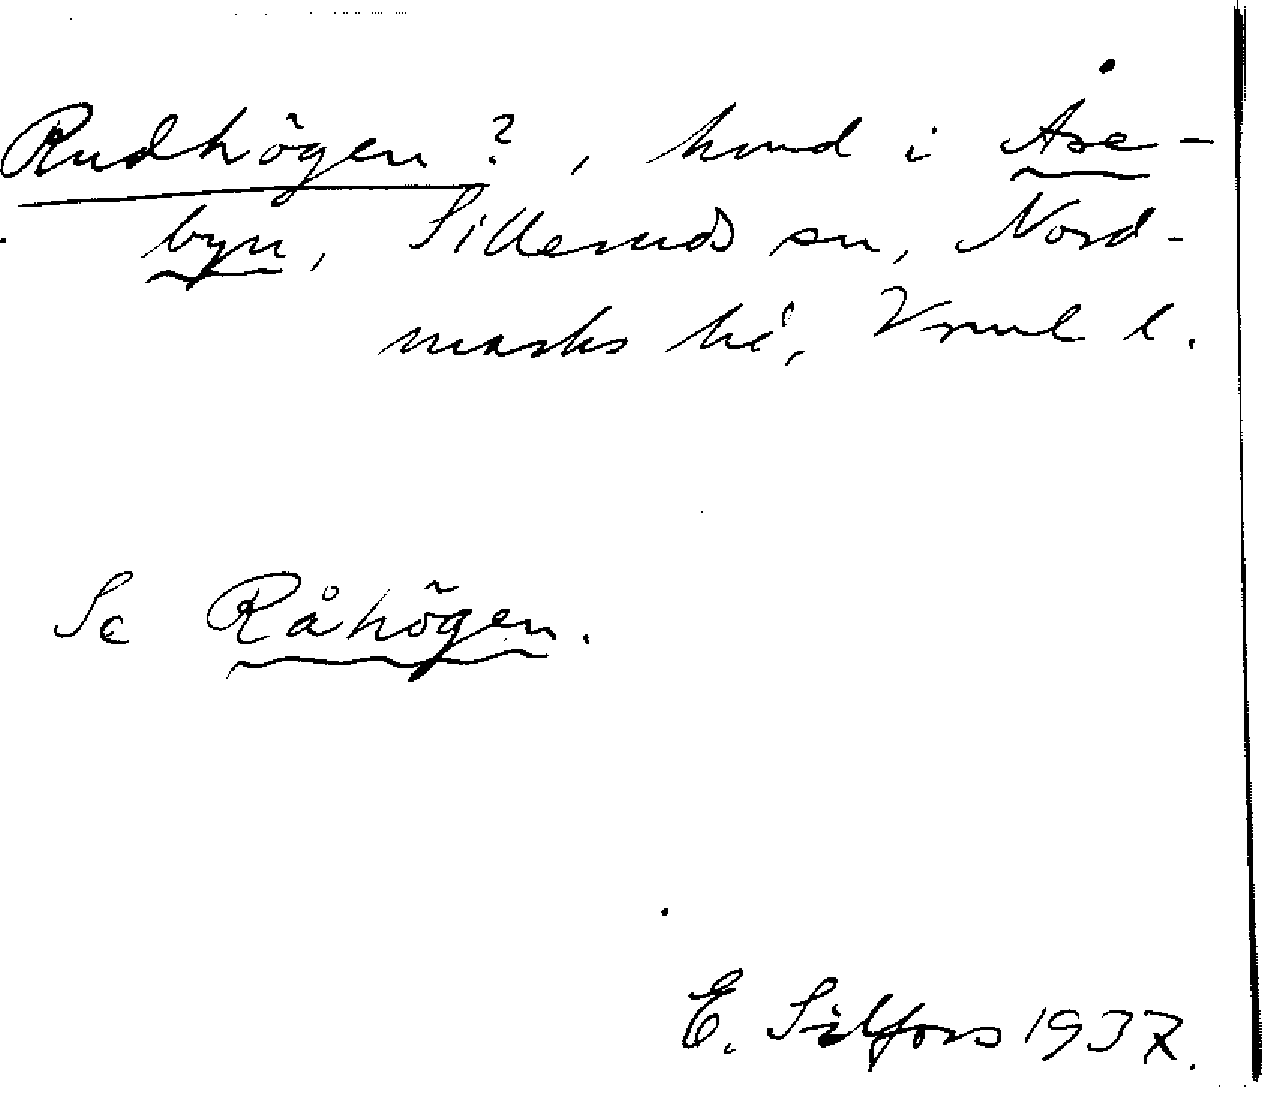 Rudhögen ?, hmd i Åse-
byn, Silleruds sn, Nord-
marks hd, Vrml l.
Se Råhögen.
E. Silfors 1937.